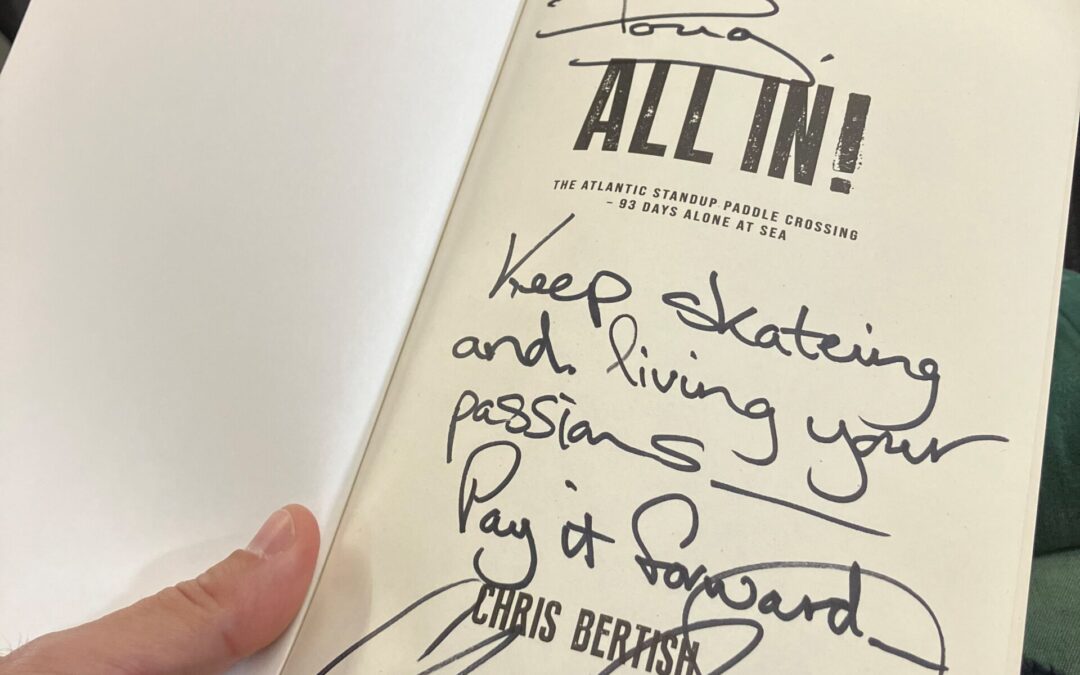 Doug,
ALL IN!
THE ATLANTIC STANDUP PADDLE CROSSING
– 93 DAYS ALONE AT SEA
Keep skateing
and. living your
passions
Pay it forward
CHRIS BERTISH